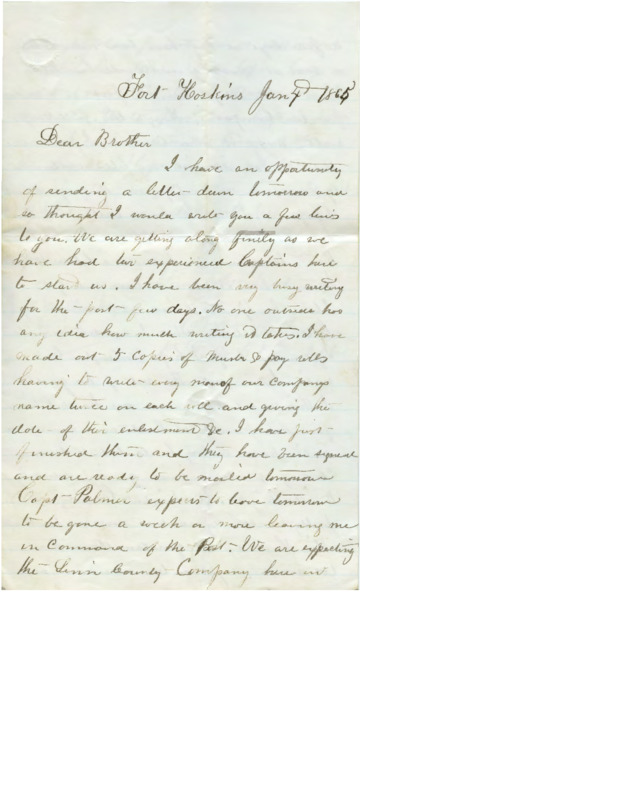 Fort Hoskins Jan 7th 1865
Dear Brother
I have an opportunity
of sending a letter down tomorrow and
so thought I would write you a few lines
to you. We are getting along finely as we
have had two experienced Captains here
to start us. I have been very busy writing
for the past few days. No one outside has
any idea how much writing it takes. I have
made out 5 Copies of Muster & pay rolls
having to write every man of our Companys
name twice on each roll and giving the
date of their enlistment &c. I have just
finished them and they have been signed
and are ready to be mailed tomorrow
Capt Palmer expects to leave tomorrow
to be gone a week or more leaving me
in Command of the Post. We are expecting
the Linn County Company here in